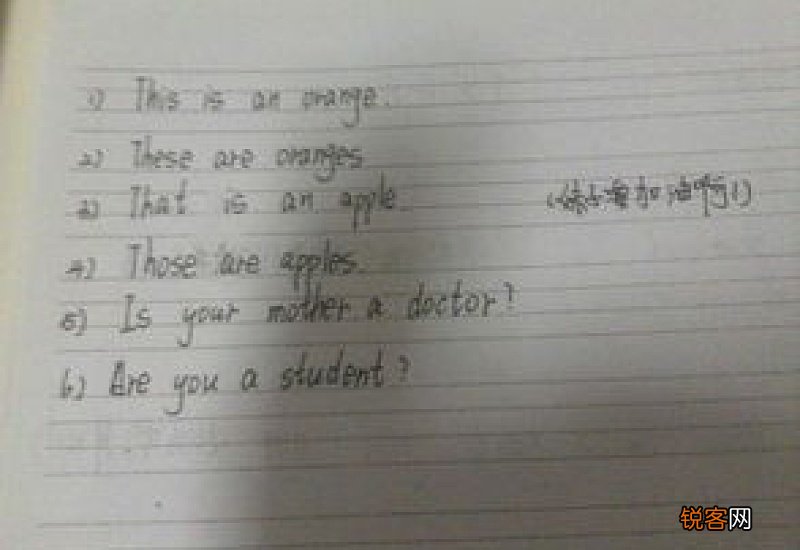 1) This is an orange.
2) These are oranges
3) That is an apple.
4) Those are apples.
5) Is your mother a doctor?
6) Are you a student?
加油
锐客网